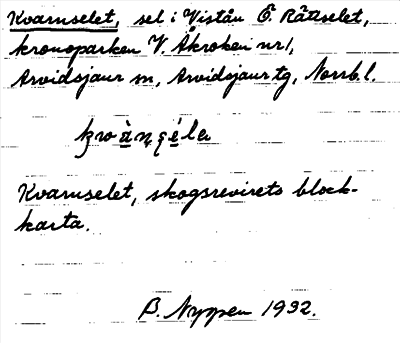 Kvarnselet, sel i Vistån Ö. Råttselet,
kronoparken V. Åkroken nr 1,
Arvidsjaur sn, Arvidsjaur tg, Norrb. l.
Kvarnselet, skogsrevirets block-
karta.
B. Nyppen 1932.